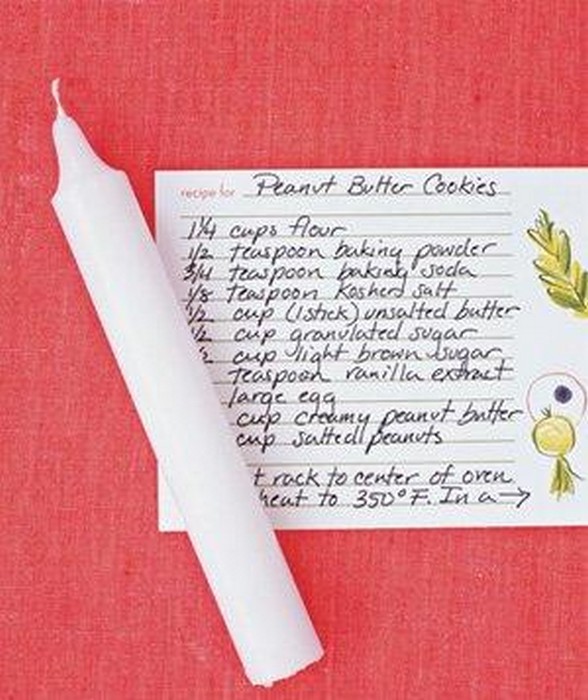 recipe for Peanut Butter Cookies
1 1/4 cups flour
1/2 teaspoon baking powder
3/4 teaspoon baking soda
1/8 teaspoon Kosher salt
1/2 cup (1 stick) unsalted butter
1/2 cup granulated sugar
1/2 cup light brown sugar
teaspoon vanilla extract
large egg
cup creamy peanut butter
cup salted peanuts
t rack to center of oven.
heat to 350°F. In a →